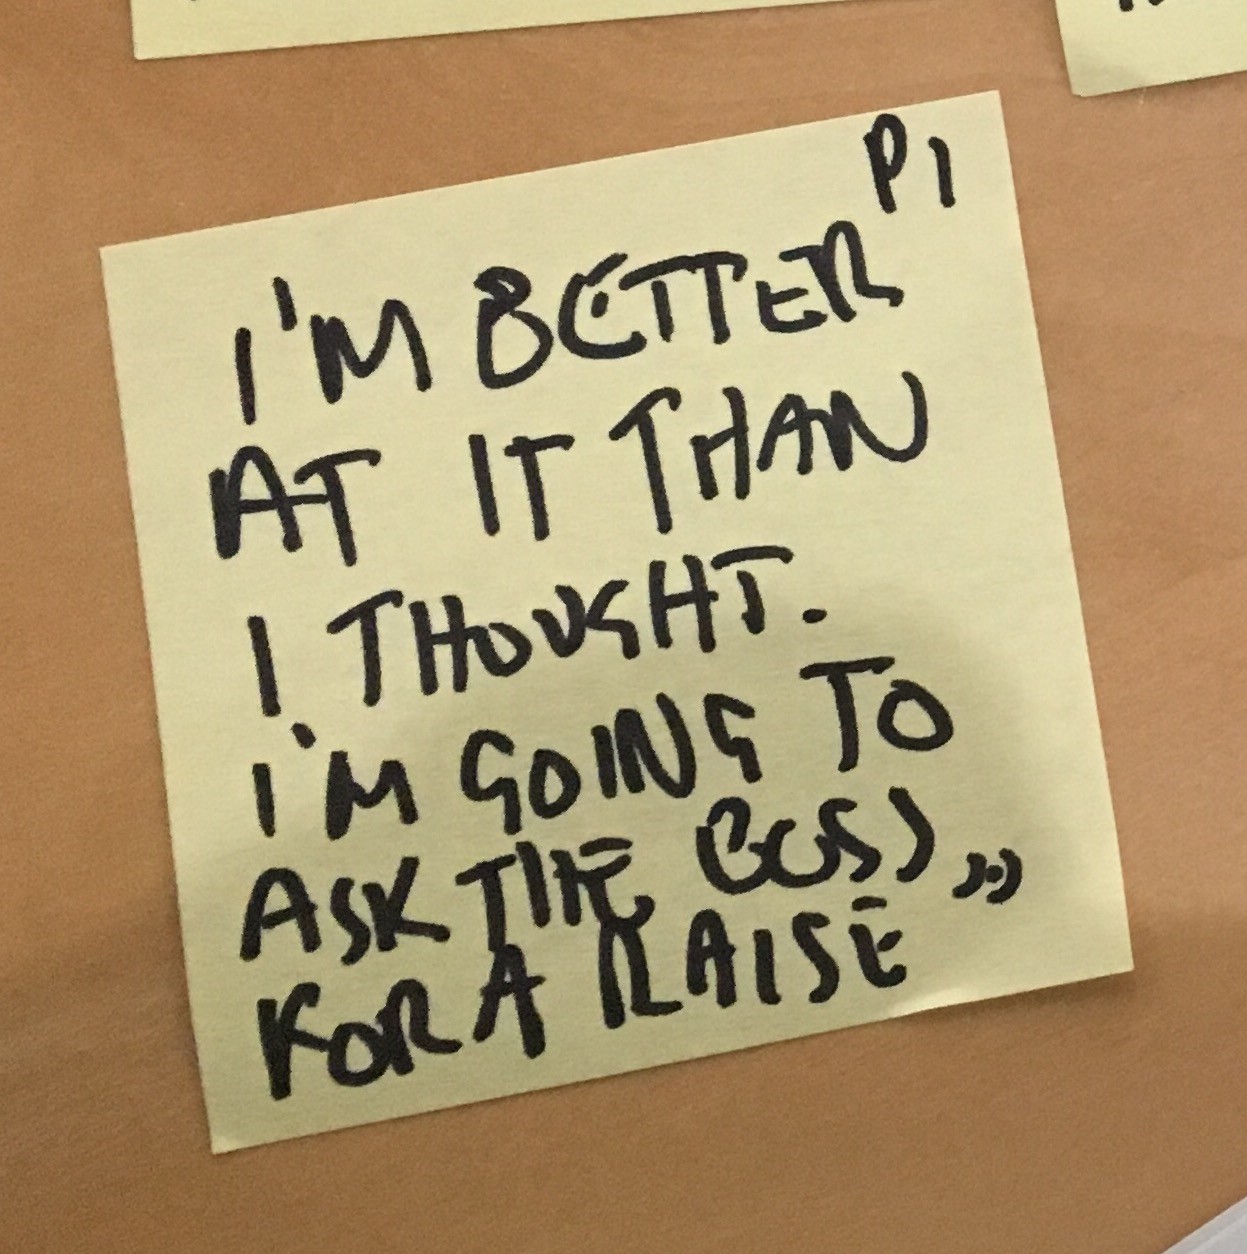 P1
I'M BETTER
AT IT THAN
I THOUGHT.
I'M GOING TO
ASK THE BOSS ;-)
FOR A RAISE